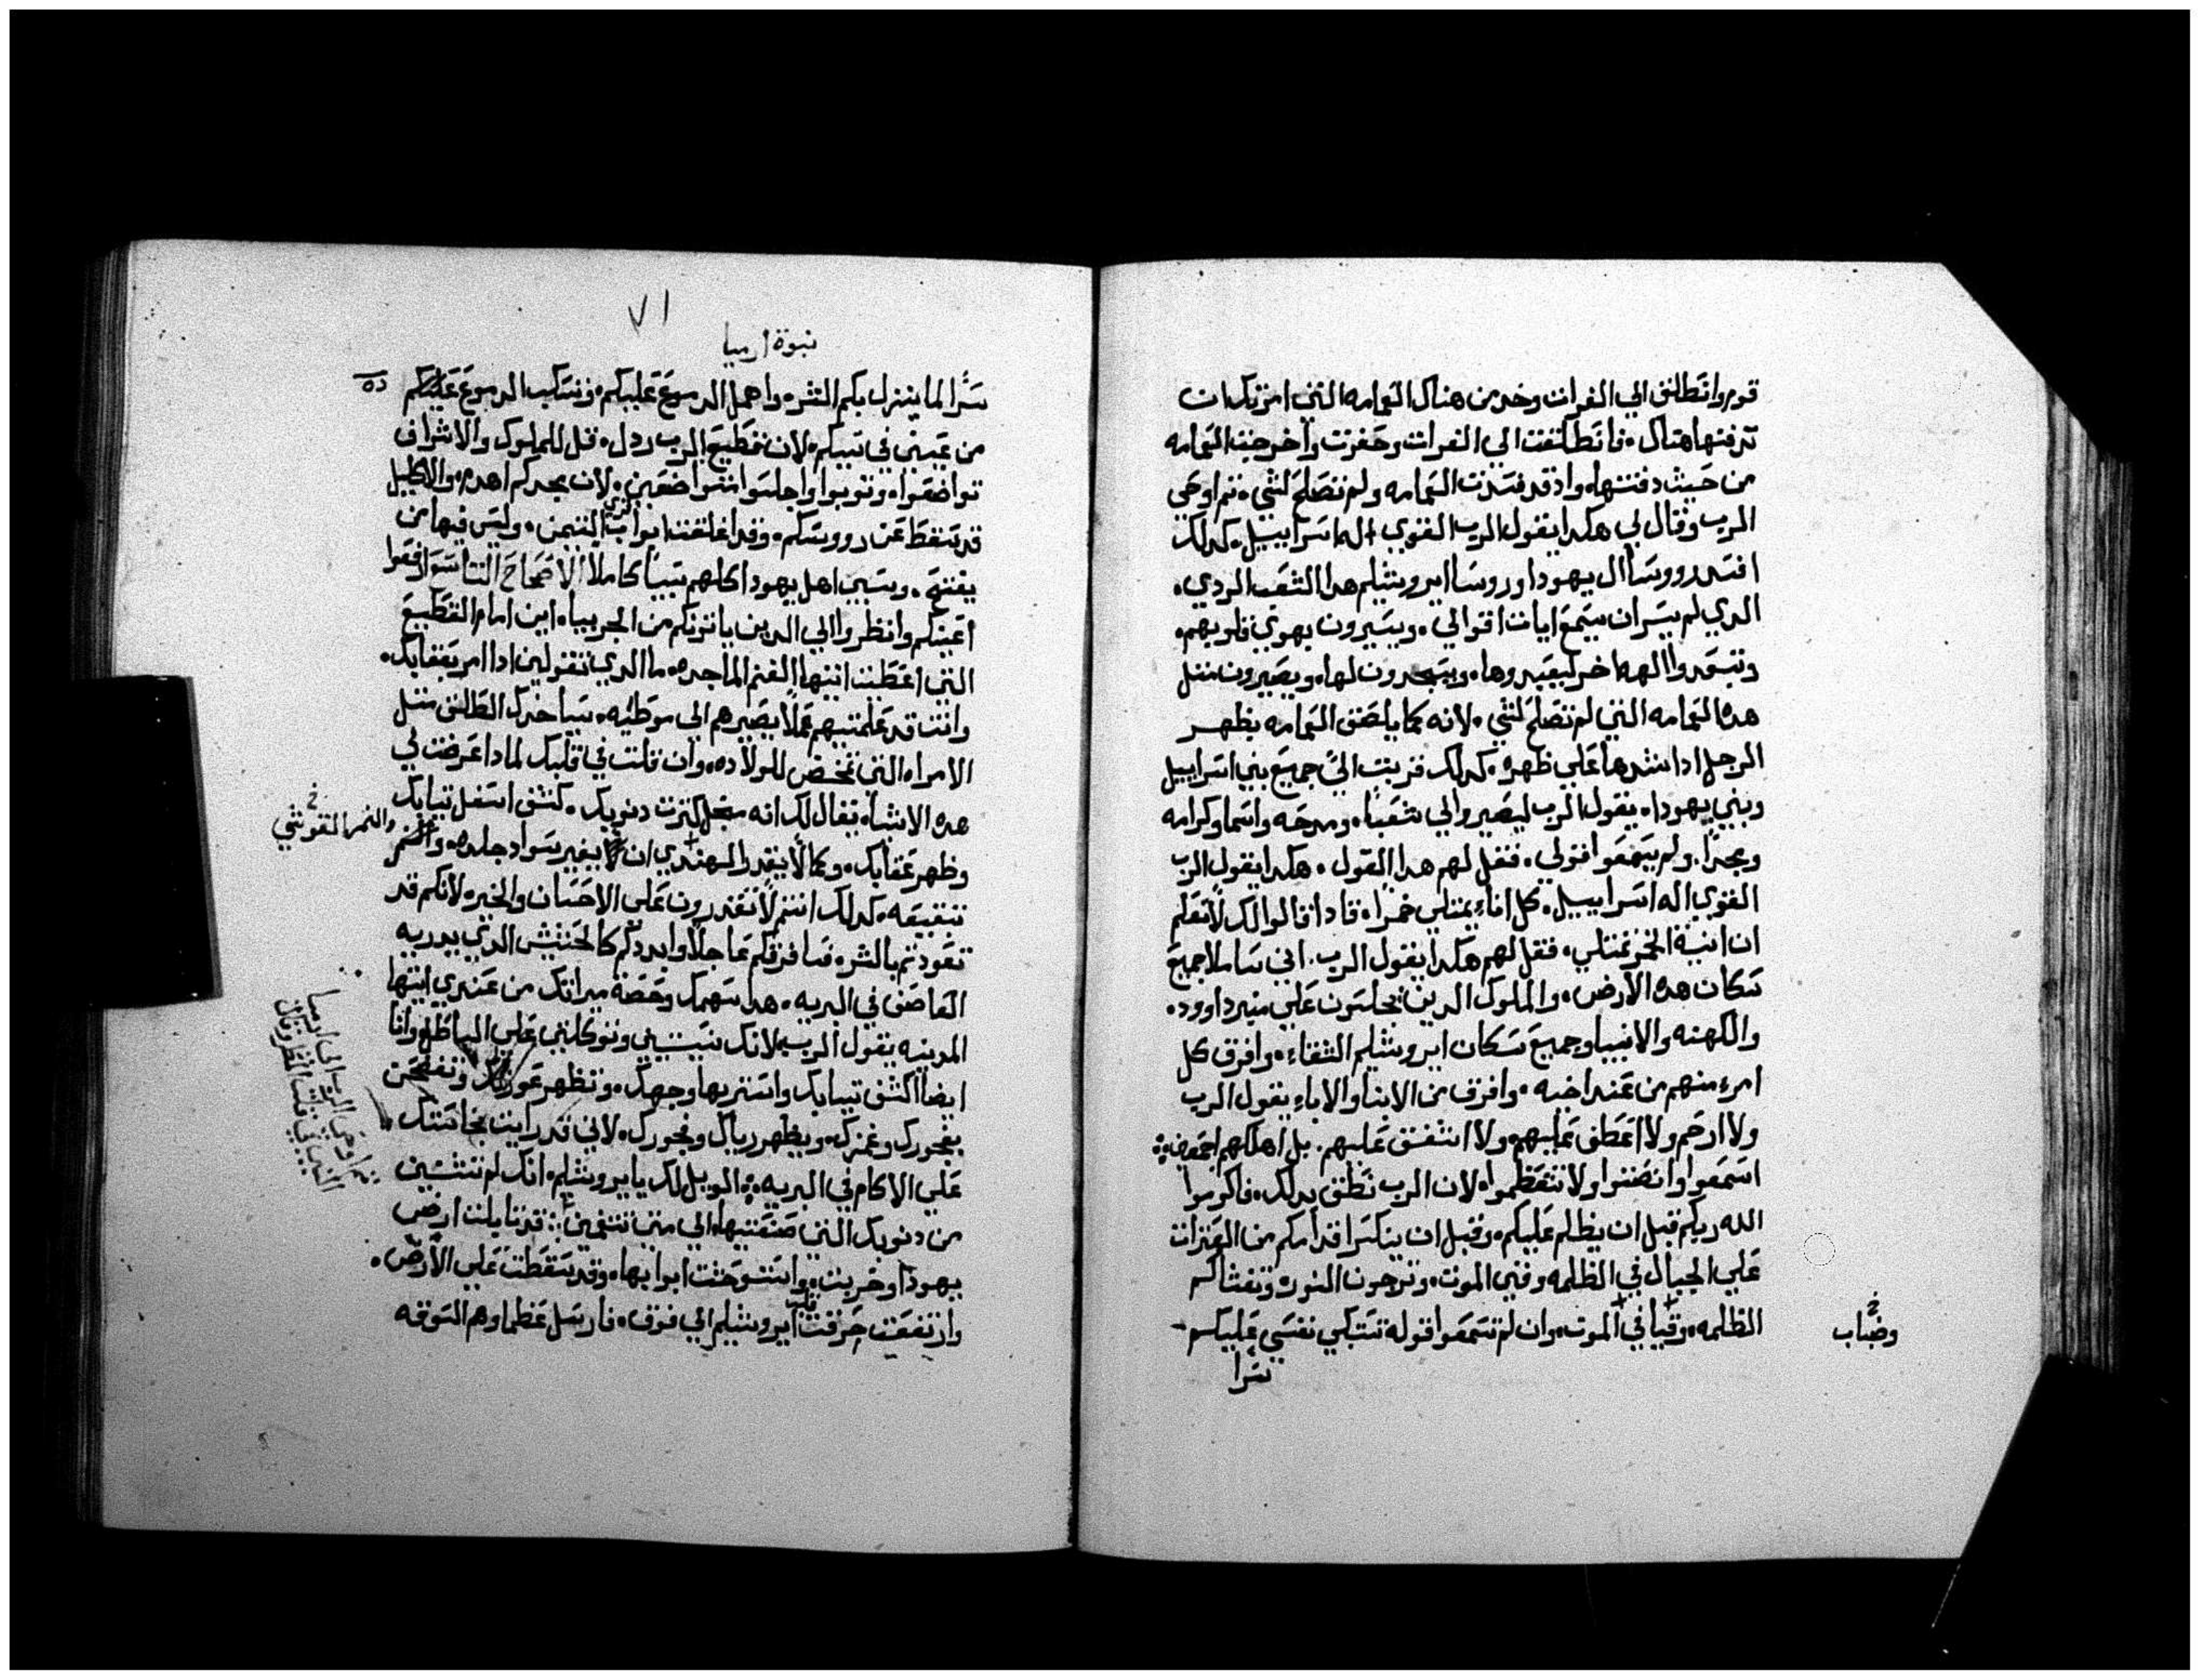 قوم وانطلق الي الفرات وخد من هناك العمامه التي امرتك ان
تدفنها هناك. فانطلقت الي الفرات وحفرت واخرجت العمامه
من حيث دفنتها. واد قد فسدت العمامه ولم تصلح لشي. تم اوحي
الرب وقال لي هكدا يقول الرب القوي اله اسراييل. كدلك
افسد رووسا ال يهودا وروسا ايروشليم هدا الشعب الردي.
الدي لم يسر ان يسمع ايات اقوالي. ويسيرون بهوي قلوبهم.
وتبعدوا الهه اخر ليعبدوها. ويسجدون لها. ويصيرون متل
هده العمامه التي لم تصلح لشي. لانه كما يلصق العمامه بظهر
الرجل ادا شدها علي ظهره. كدلك قربت الي جميع بني اسراييل
وبني يهودا. يقول الرب ليصيروا لي شعبا. ومدحه واسما وكرامه
ومجدا. ولم يسمعوا قولي. فقل لهم هدا القول. هكدا يقول الرب
القوي اله اسراييل. كل اناء يمتلي خمرا. فادا قالوا لك لا نعلم
ان انية الخمر تمتلي. فقل لهم هكدا يقول الرب. اني ساملا جميع
سكان هده الارض. والملوك الدين يجلسون علي منبر داوود.
والكهنه والانبيا وجميع سكان ايروشليم الشقاء. وافرق كل
امرء منهم من عند اخيه. وافرق من الابنا والاباء يقول الرب
ولا ارحم ولا اعطف عليهم ولا اشفق عليهم. بل اهلكهم اجمعين
اسمعوا وانصتوا ولا تتعظموا. لان الرب نطق بدلك. فاكرموا
الله ربكم قبل ان يظلم عليكم. وقبل ان ينكسرا قدامكم من العترات
علي الجبال في الظلمه وفي الموت. وترجون النور. وتغشاكم
الظلمه. وقيا في الموت. وان لم تسمعوا قوله ستبكي نفسي عليكم
سرا
وضباب
٧١
نبوة ارميا
سرا لما ينزل بكم الشر. واهمل الدموع عليكم. وتسكب الدموع عليكم
من عيني في سبيكم. لان قطيع الرب ردل. قل للملوك والاشراف
تواضعوا. وتوبوا واجلسوا متواضعين. ولان مجدكم اهدم. والاكليل
قد سقط عن رووسكم. وقد اغلقت ابواب التيمن. وليس فيها من
يفتح. وسبي اهل يهودا كلهم سبيا كاملا الاصحاح التاسع ارفعوا
أعينكم وانظروا الي الدين ياتونكم من الجربيا. اين امام القطيع
التي اعطيت اليها الغنم الماجده. ما الدي تقولين ادا امر بعقابك.
وانت قد علمتيهم عملا يصيرهم الي موطئه. سياخدك الطلق متل
الامراه التي تمخض للولاده. وان قلت في قلبك لمادا عرضت لي
هده الاشيا. يقال لك انه من اجل كترت دنوبك. كشف اسفل تيابك
وظهر عقابك. وكما لا يقدر الهندي ان يغير سواد جلده. والنمر
تبقيعه. كدلك انتم لا تقدرون علي الاحسان والخير. لانكم قد
تعودتم بالشر. فسافرقكم عاجلا وابددكم كالحشيش الدي يدريه
العاصف في البريه. هدا سهمك وحصة ميراتك من عندي ايتها
المدينه يقول الرب. لانك نسيتيني وتوكلتي علي الباطل وانا
ايضا اكشف تيابك واستر بها وجهك. وتظهر عورتك وتفتضحين
بفجورك وغمزك. ويظهر رياك وفجورك. لاني قد رايت نجاستك
علي الاكام في البريه. الويل لك يا ايروشليم. انك لم تنتسين
من دنوبك التي صنعتيها. الي متي تشقين. قد نابلت ارض
يهودا وخربت. واستوحشت ابوابها. وقد سقطت علي الارض.
وارتفعت حرقت قلب ايروشليم الي فوق. فارسل عظماوهم السوقه
والنمر القوشي
تم اوحي الرب الي ارميا